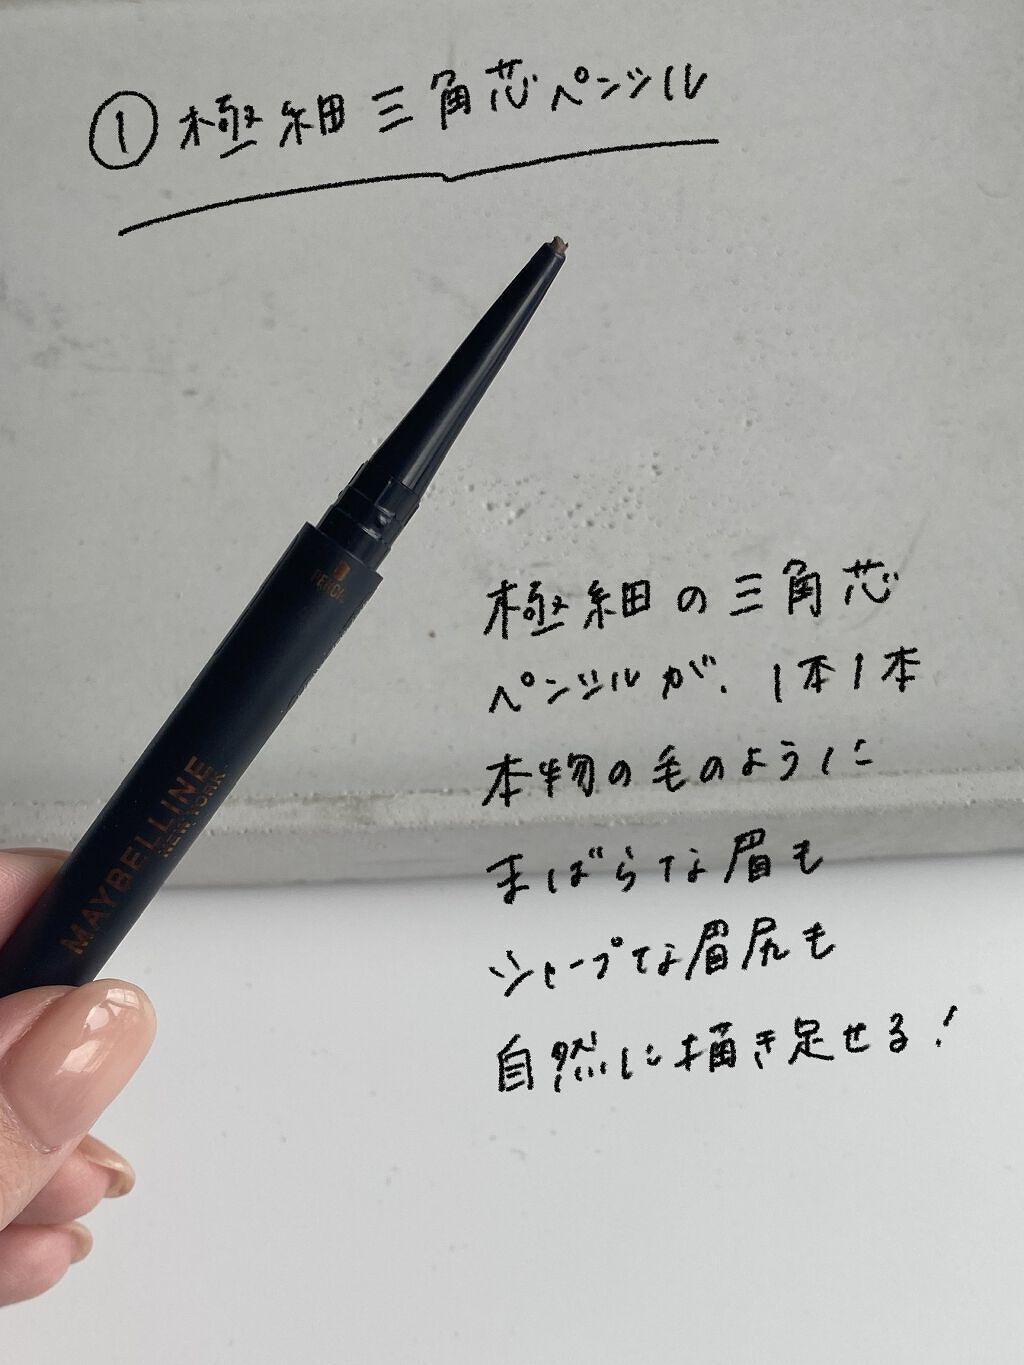 ① 極細三角芯ペンシル
PENCIL
MAYBELLINE
NEW YORK
極細の三角芯
ペンシルが、1本1本
本物の毛のように
まばらな眉も
シャープな眉尻も
自然に描き足せる！